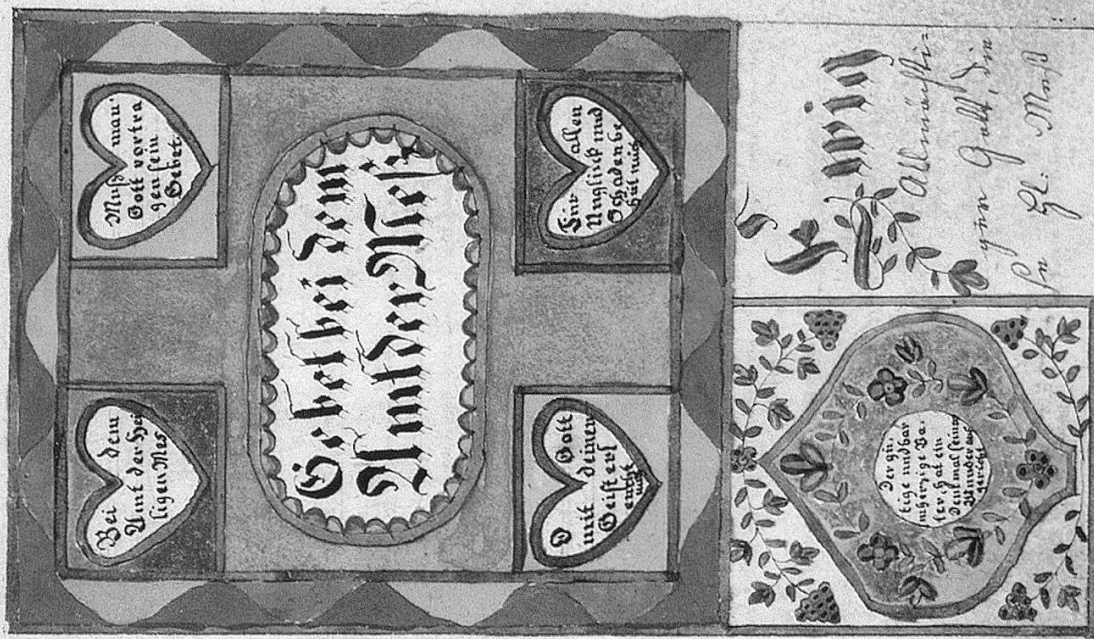 Bei dem
Amt der Hei
ligen Mes
Muß man
Gott vortra
gen sein
Gebet.
Gebet bei dem
Amt der Mess
O Gott
mit deinem
Geist erl
eucht
mich
Für allen
Unglück und
Schaden be
hüt mich
Der gü-
tige und bar
mherzige Va-
ter, hat ein
denkmal seiner
Wunder auf
gericht
Ewig
Allmächti=
ger Gott, die
Hl. Meß